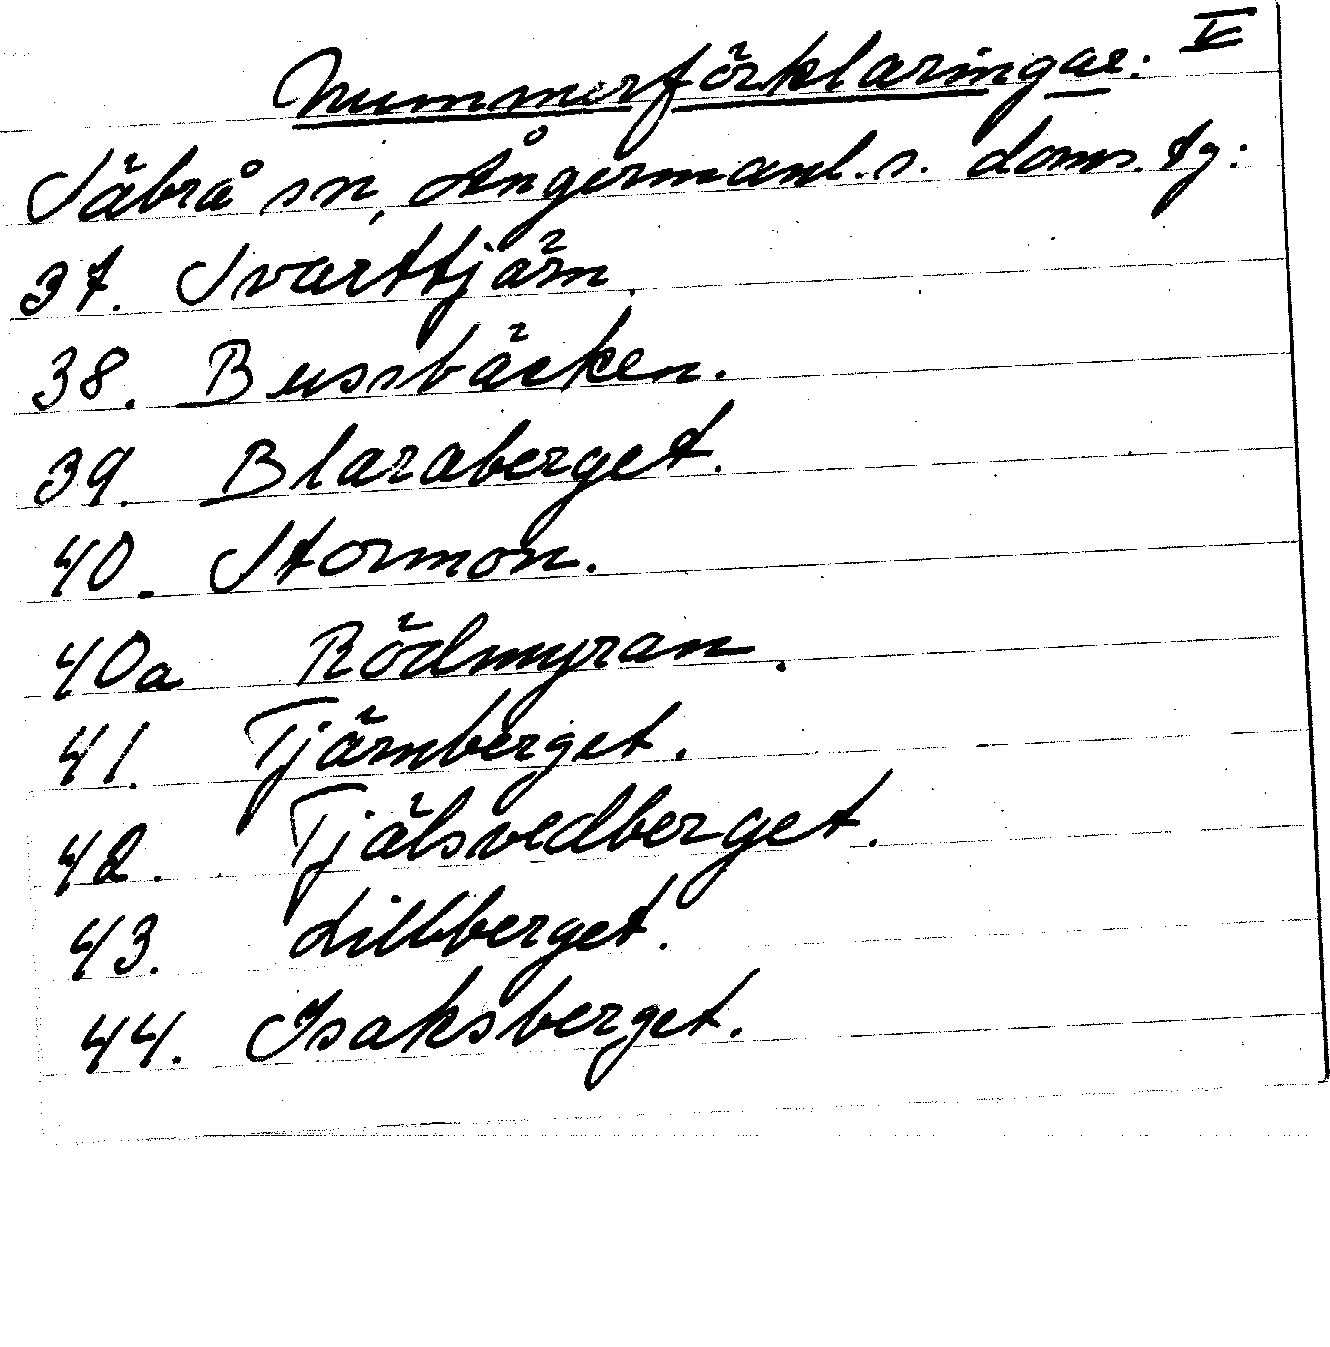 Nummerförklaringar: V
Säbrå sn, Ångermanl. s. doms. tg:
37. Svarttjärn.
38. Bussbäcken.
39. Blaraberget.
40. Stormon.
40a Rödmyran.
41. Tjärnberget.
42. Tjälsvedberget.
43. Lillberget.
44. Isaksberget.